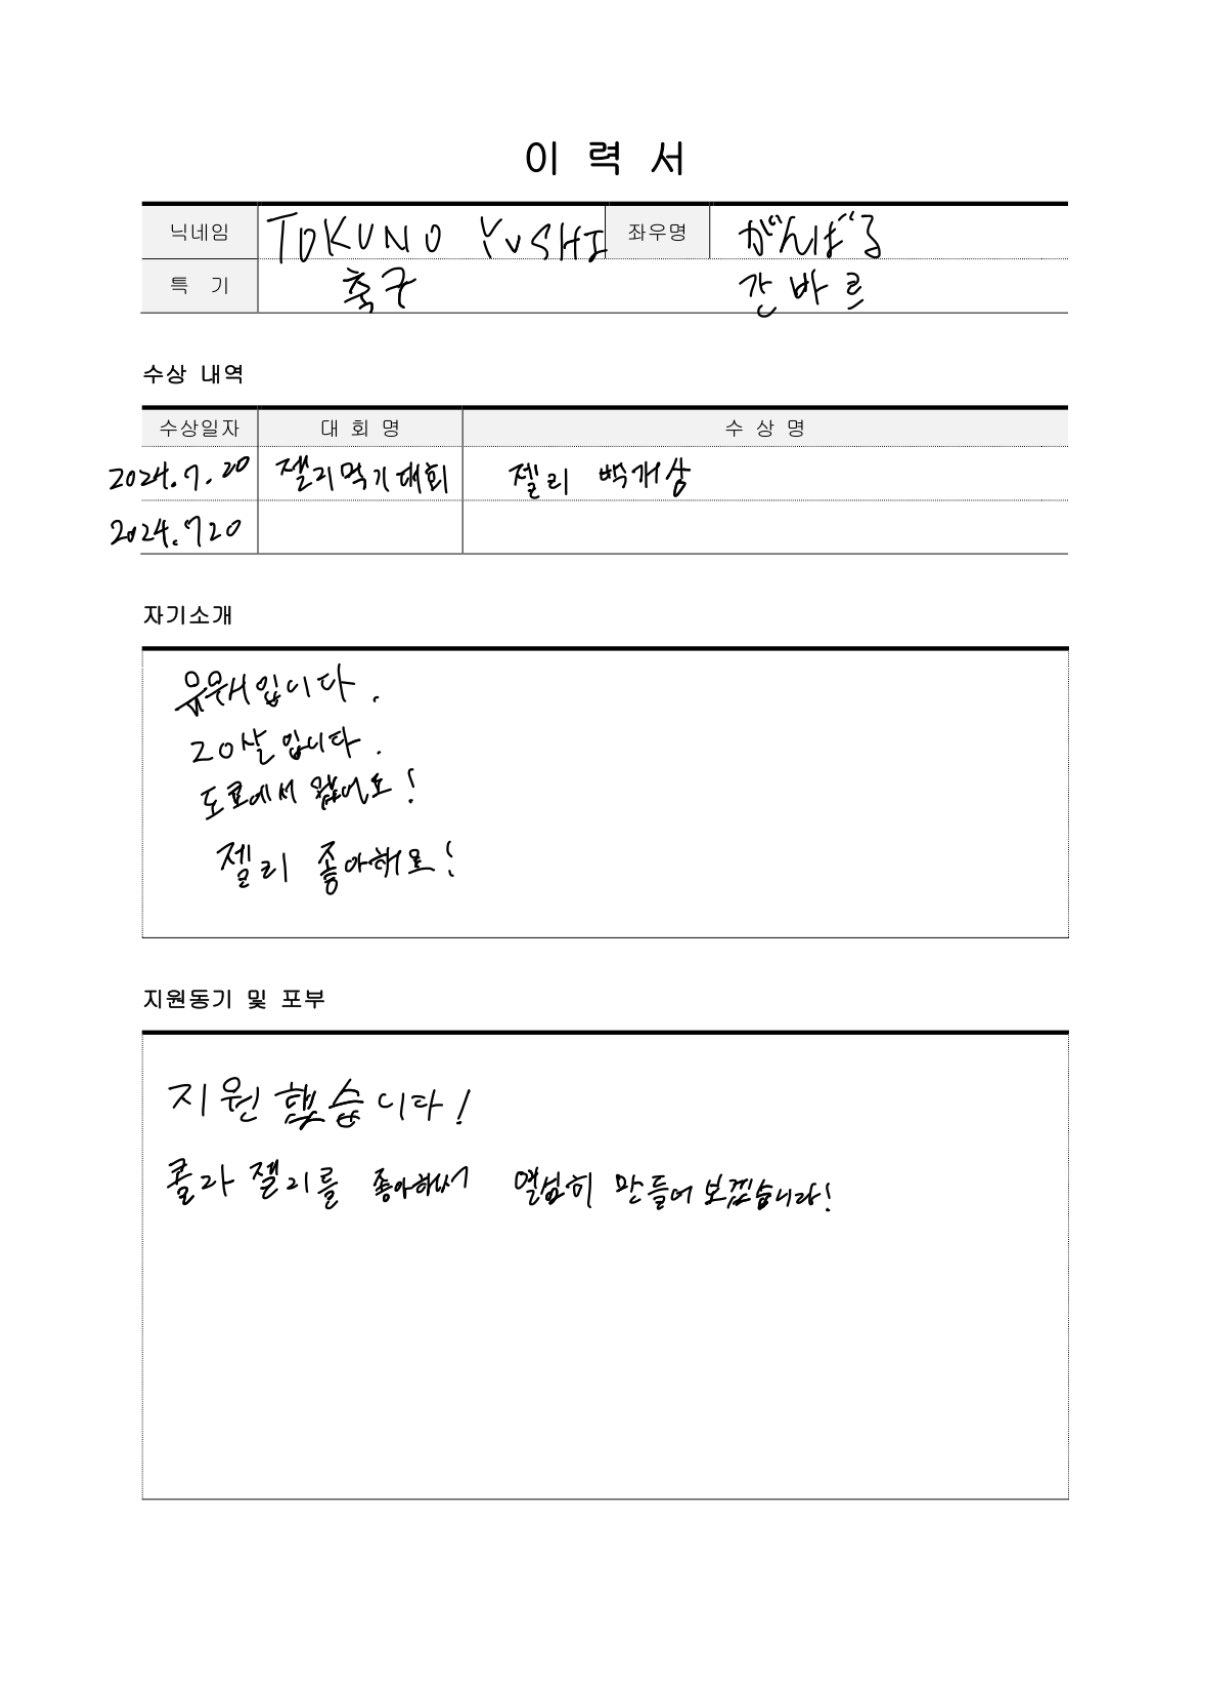 이 력 서
닉네임 TOKUNO YUSHI 좌우명 がんばる
특 기 축구 간바르
수상 내역
수상일자 대 회 명 수 상 명
2024.7.20 젤리먹기대회 젤리 빡개상
2024.720
자기소개
유우시입니다.
20살입니다.
도쿄에서 왔어요!
젤리 좋아해요!
지원동기 및 포부
지원했습니다!
콜라 젤리를 좋아해서 열심히 만들어 보겠습니다!